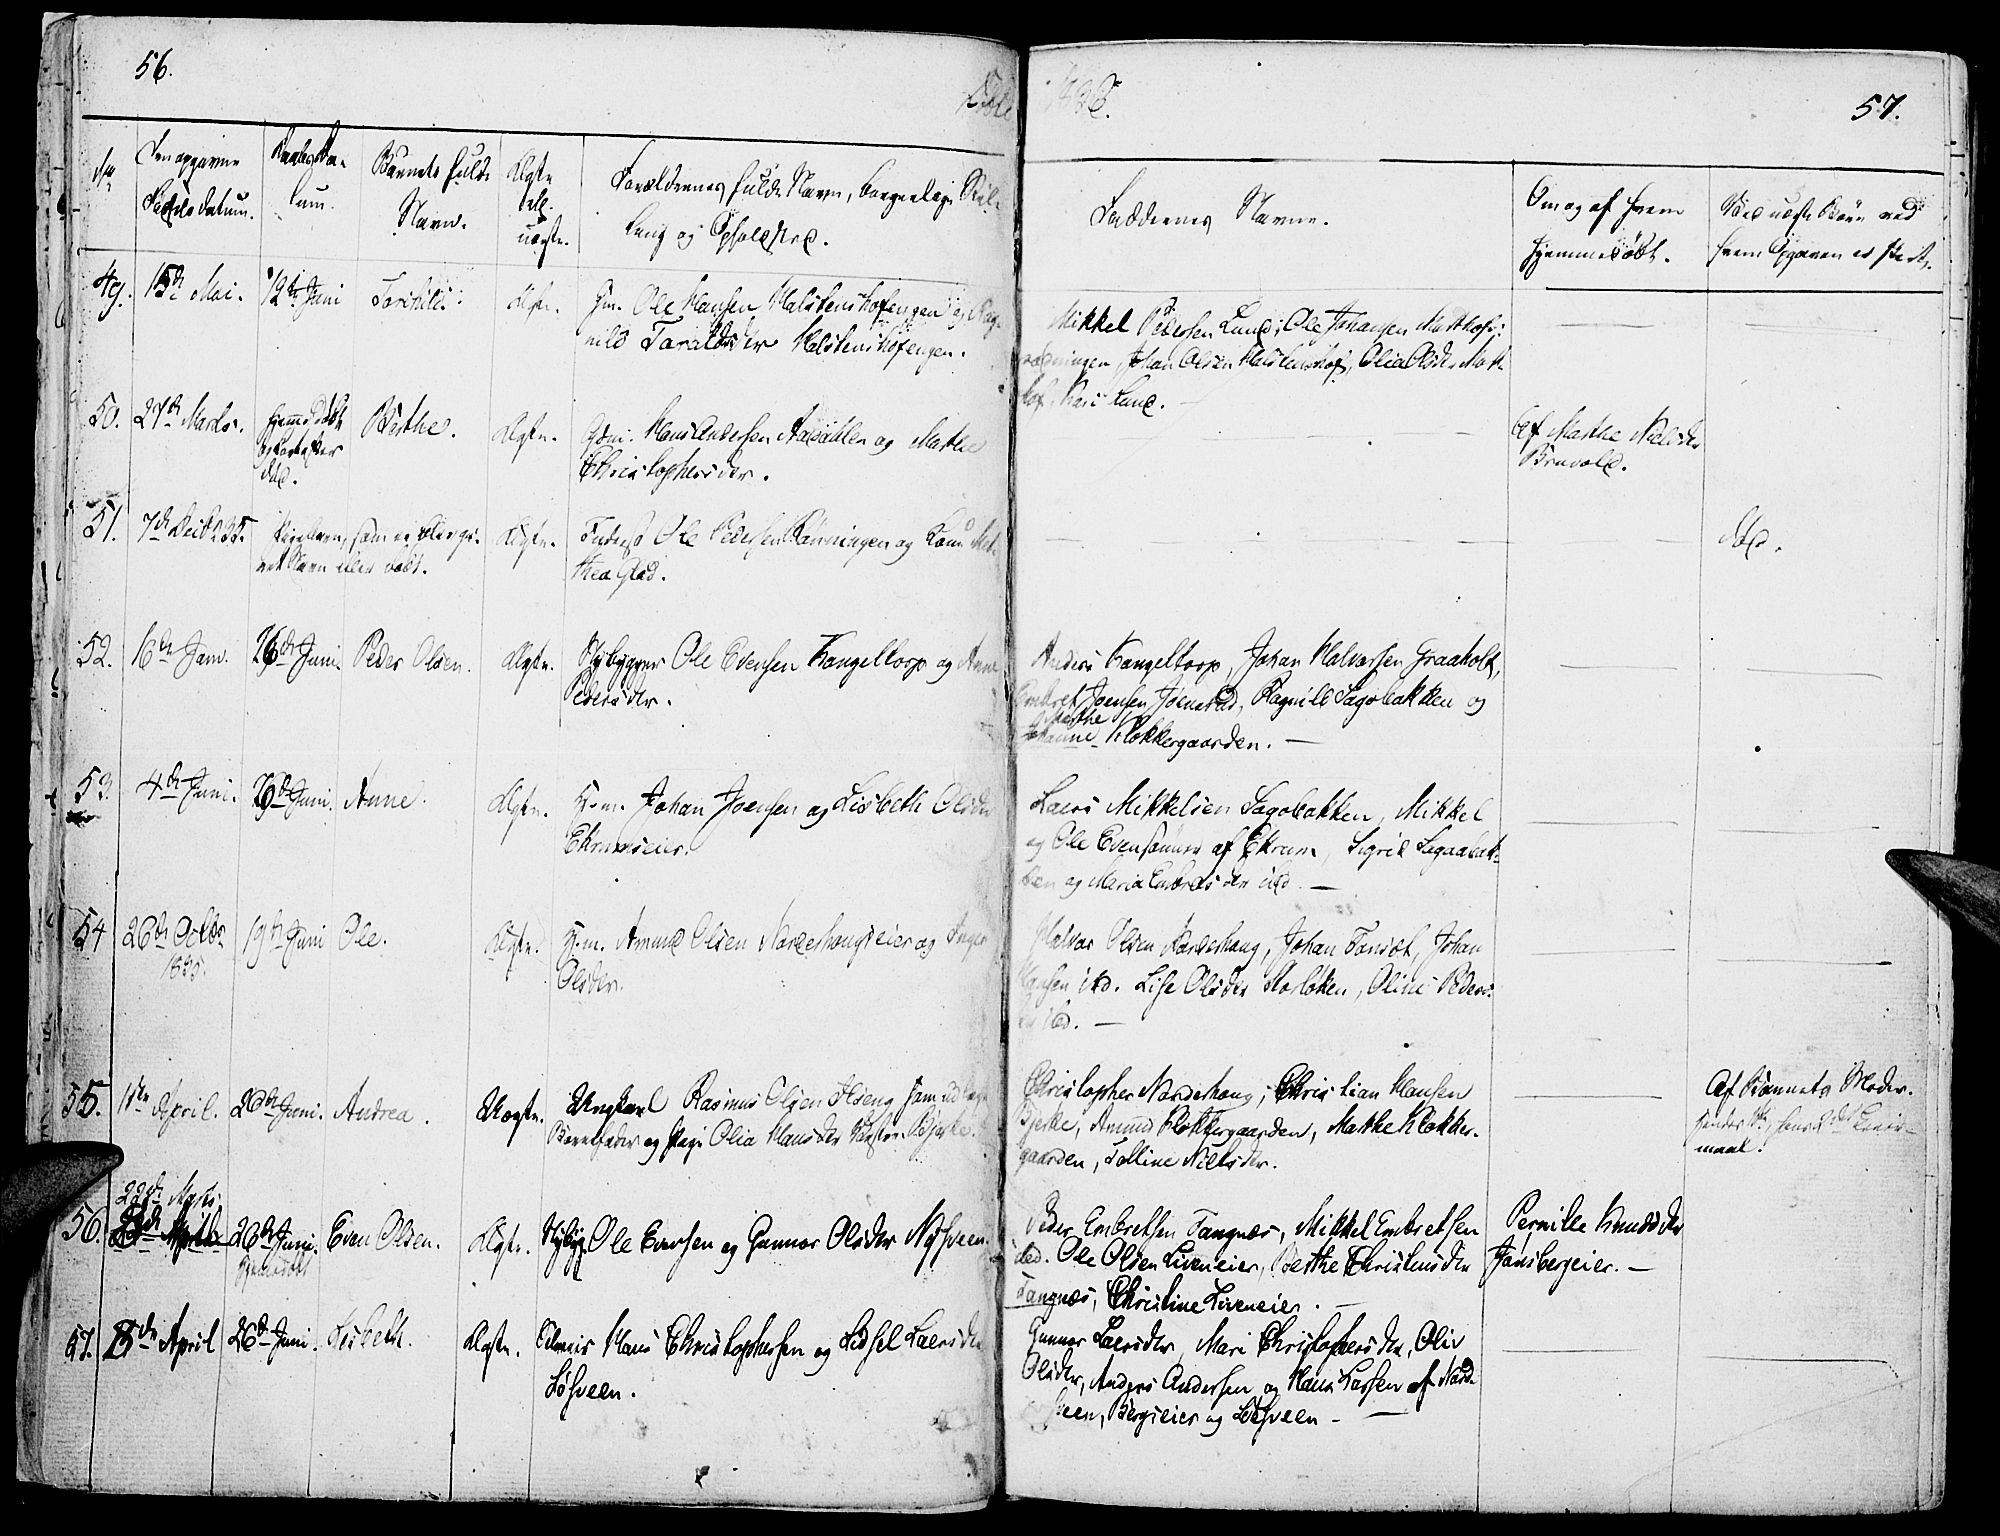 56.
57.
No
Den opgivne
Fødselsdatum.
Daabsda-
tum.
Barnets fulde
Navn.
Ægte
ell.
uægte.
Forældrenes fulde Navn, borgerlige Stil-
ling og Opholdsted.
Faddernes Navne.
Om og af hvem
hjemmedøbt.
Ved uægte Børn ved
hvem Opgaven er skeet.
49. 15de Mai. 12te Juni Torkild. Ægte. Gm. Ole Hansen Halstenshofengen og Rag-
nild Taraldsder Halstenshofengen.
Mikkel Pedersen Lund, Ole Johansen
Johan Olsen Halstenshof, Olia Olsder
Kari Lund.
50. 27de Marts. hjemmedøbt
død.
Berthe. Ægte. Gdm. Hans Andersen og Mathe
Christophersder.
Af Mathe Nielsder
Bruvold.
51. 7de Decbr 35. Pigebarn, som ei blev gi-
vet Navn eller døbt.
Ægte. Ole Pedersen Rønningen og Kone Mat-
hea Glad.
død.
52. 16de Janr. 26de Juni. Peder Olsen. Ægte. Nybygger Ole Evensen Kangeltorp og Anne
Pedersder.
Anders Kangeltorp, Johan Halvorsen Graaholt,
Embret Joensen Joenstad, Ragnild Sagbakken og
Mathe
Klokkergaarden.
53. 4de Juni. 26de Juni. Anne. Ægte. Hm. Johan Joensen og Lisbeth Olsder
Ekrumseier.
Laers Mikkelsen Sagbakken, Mikkel
og Ole Evensønner af Ekrum, Sigrid Sagbak-
ken og Maria Embretsder ibd.
54 26de Octbr
1835.
19de Juni Ole. Ægte. Hm. Amund Olsen Norderhougseier og Inger
Olsder.
Halvor Olsen Norderhoug, Johan Tønset, Johan
Hansen ibd. Lise Olsder Storløken, Oline Peders-
der ibd.
55. 11te April. 26de Juni. Andrea. Uægte. Ungkarl Rasmus Olsen Ilseng som udlagt
Barnefader og Pige Olia Hansder
Christopher Norderhoug, Christian Hansen
Bjerke, Amund Klokkergaarden, Mathe Klokker-
gaarden, Tolline Nielsder.
Af Barnets Moder.
hendes 1ste, hans 2det Leier-
maal.
22de Marts.
56. 26de Juni.
hjemmedøbt
Even Olsen. Ægte. Nybyg. Ole Evensen og Gunnor Olsder Nysveen.
Peder Embretsen Tangnæs, Mikkel Embretsen
ibd. Ole Olsen Liveneier, Berthe Christensder
Tangnæs, Christine Liveneier.
Pernille Knudsder
Jonsbergeier.
57. 15de April 26de Juni. Lisbeth. Ægte. Hans Christophersen og Lidsel Laersder
Løsveen.
Gunnor Laersder, Mari Christophersder, Oliv
Olsder, Anders Andersen og Hans Larsen af Nord-
sveen, Bergseier og Løsveen